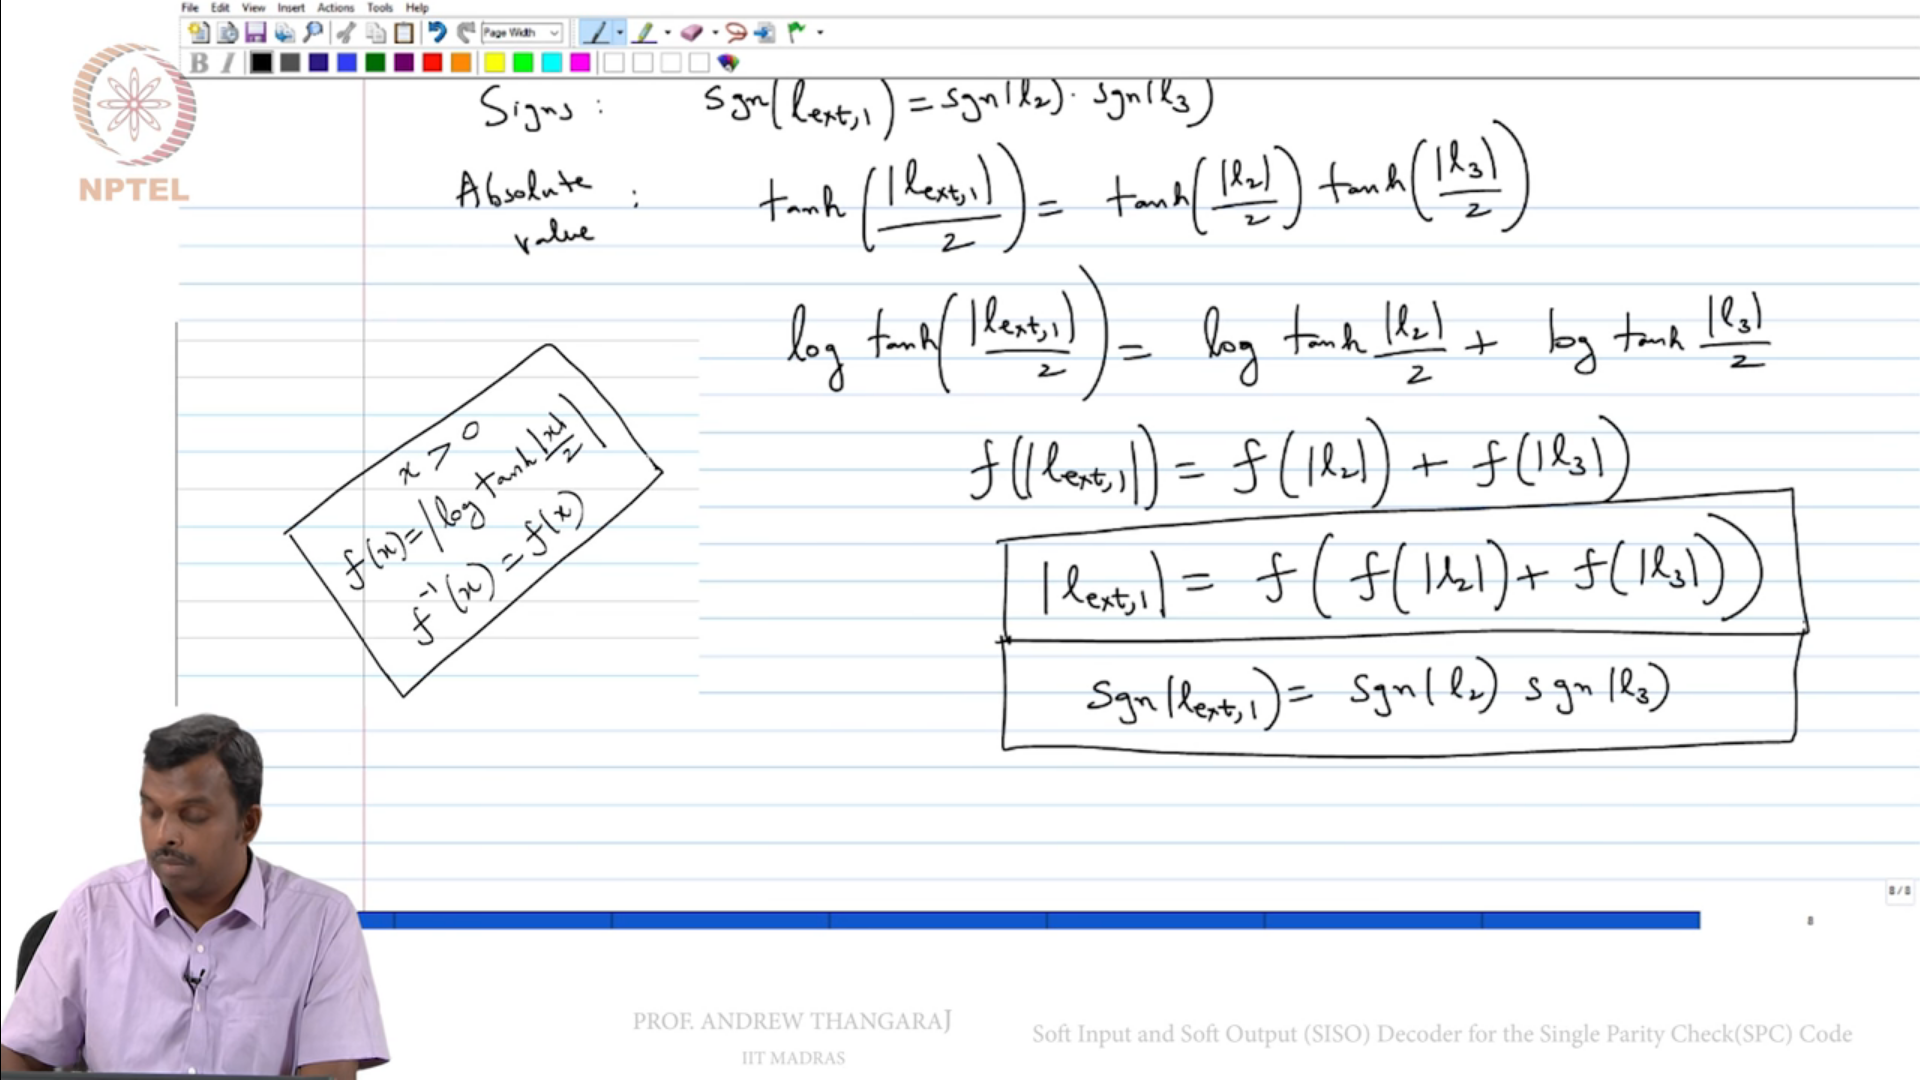 File Edit View Insert Actions Tools Help
Page Width
B I
NPTEL
Signs : sgn(l_ext,1) = sgn(l_2) · sgn(l_3)
Absolute value : tanh(|l_ext,1|/2) = tanh(|l_2|/2) tanh(|l_3|/2)
log tanh(|l_ext,1|/2) = log tanh |l_2|/2 + log tanh |l_3|/2
x > 0
f(x) = |log tanh |x|/2|
f^-1(x) = f(x)
f(|l_ext,1|) = f(|l_2|) + f(|l_3|)
|l_ext,1| = f(f(|l_2|) + f(|l_3|))
sgn(l_ext,1) = sgn(l_2) sgn(l_3)
8/8
8
PROF. ANDREW THANGARAJ
IIT MADRAS
Soft Input and Soft Output (SISO) Decoder for the Single Parity Check(SPC) Code